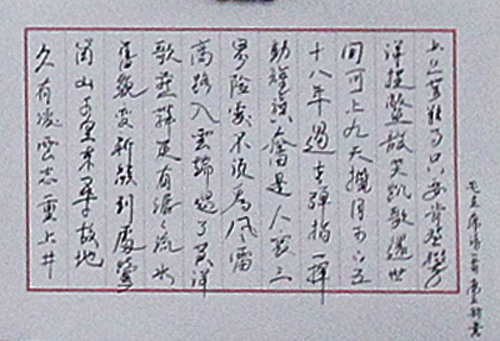 久有凌雲志重上井
岡山千里来尋故地
舊貌变新颜到處鶯
歌燕舞更有潺々流水
高路入雲端過了黄洋
界险處不须看风雷
動旌旗奮是人寰三
十八年過去弹指一揮
间可上九天攬月可下五
洋捉鳖谈笑凯歌還世
上无难事只要肯登攀
毛主席诗一首